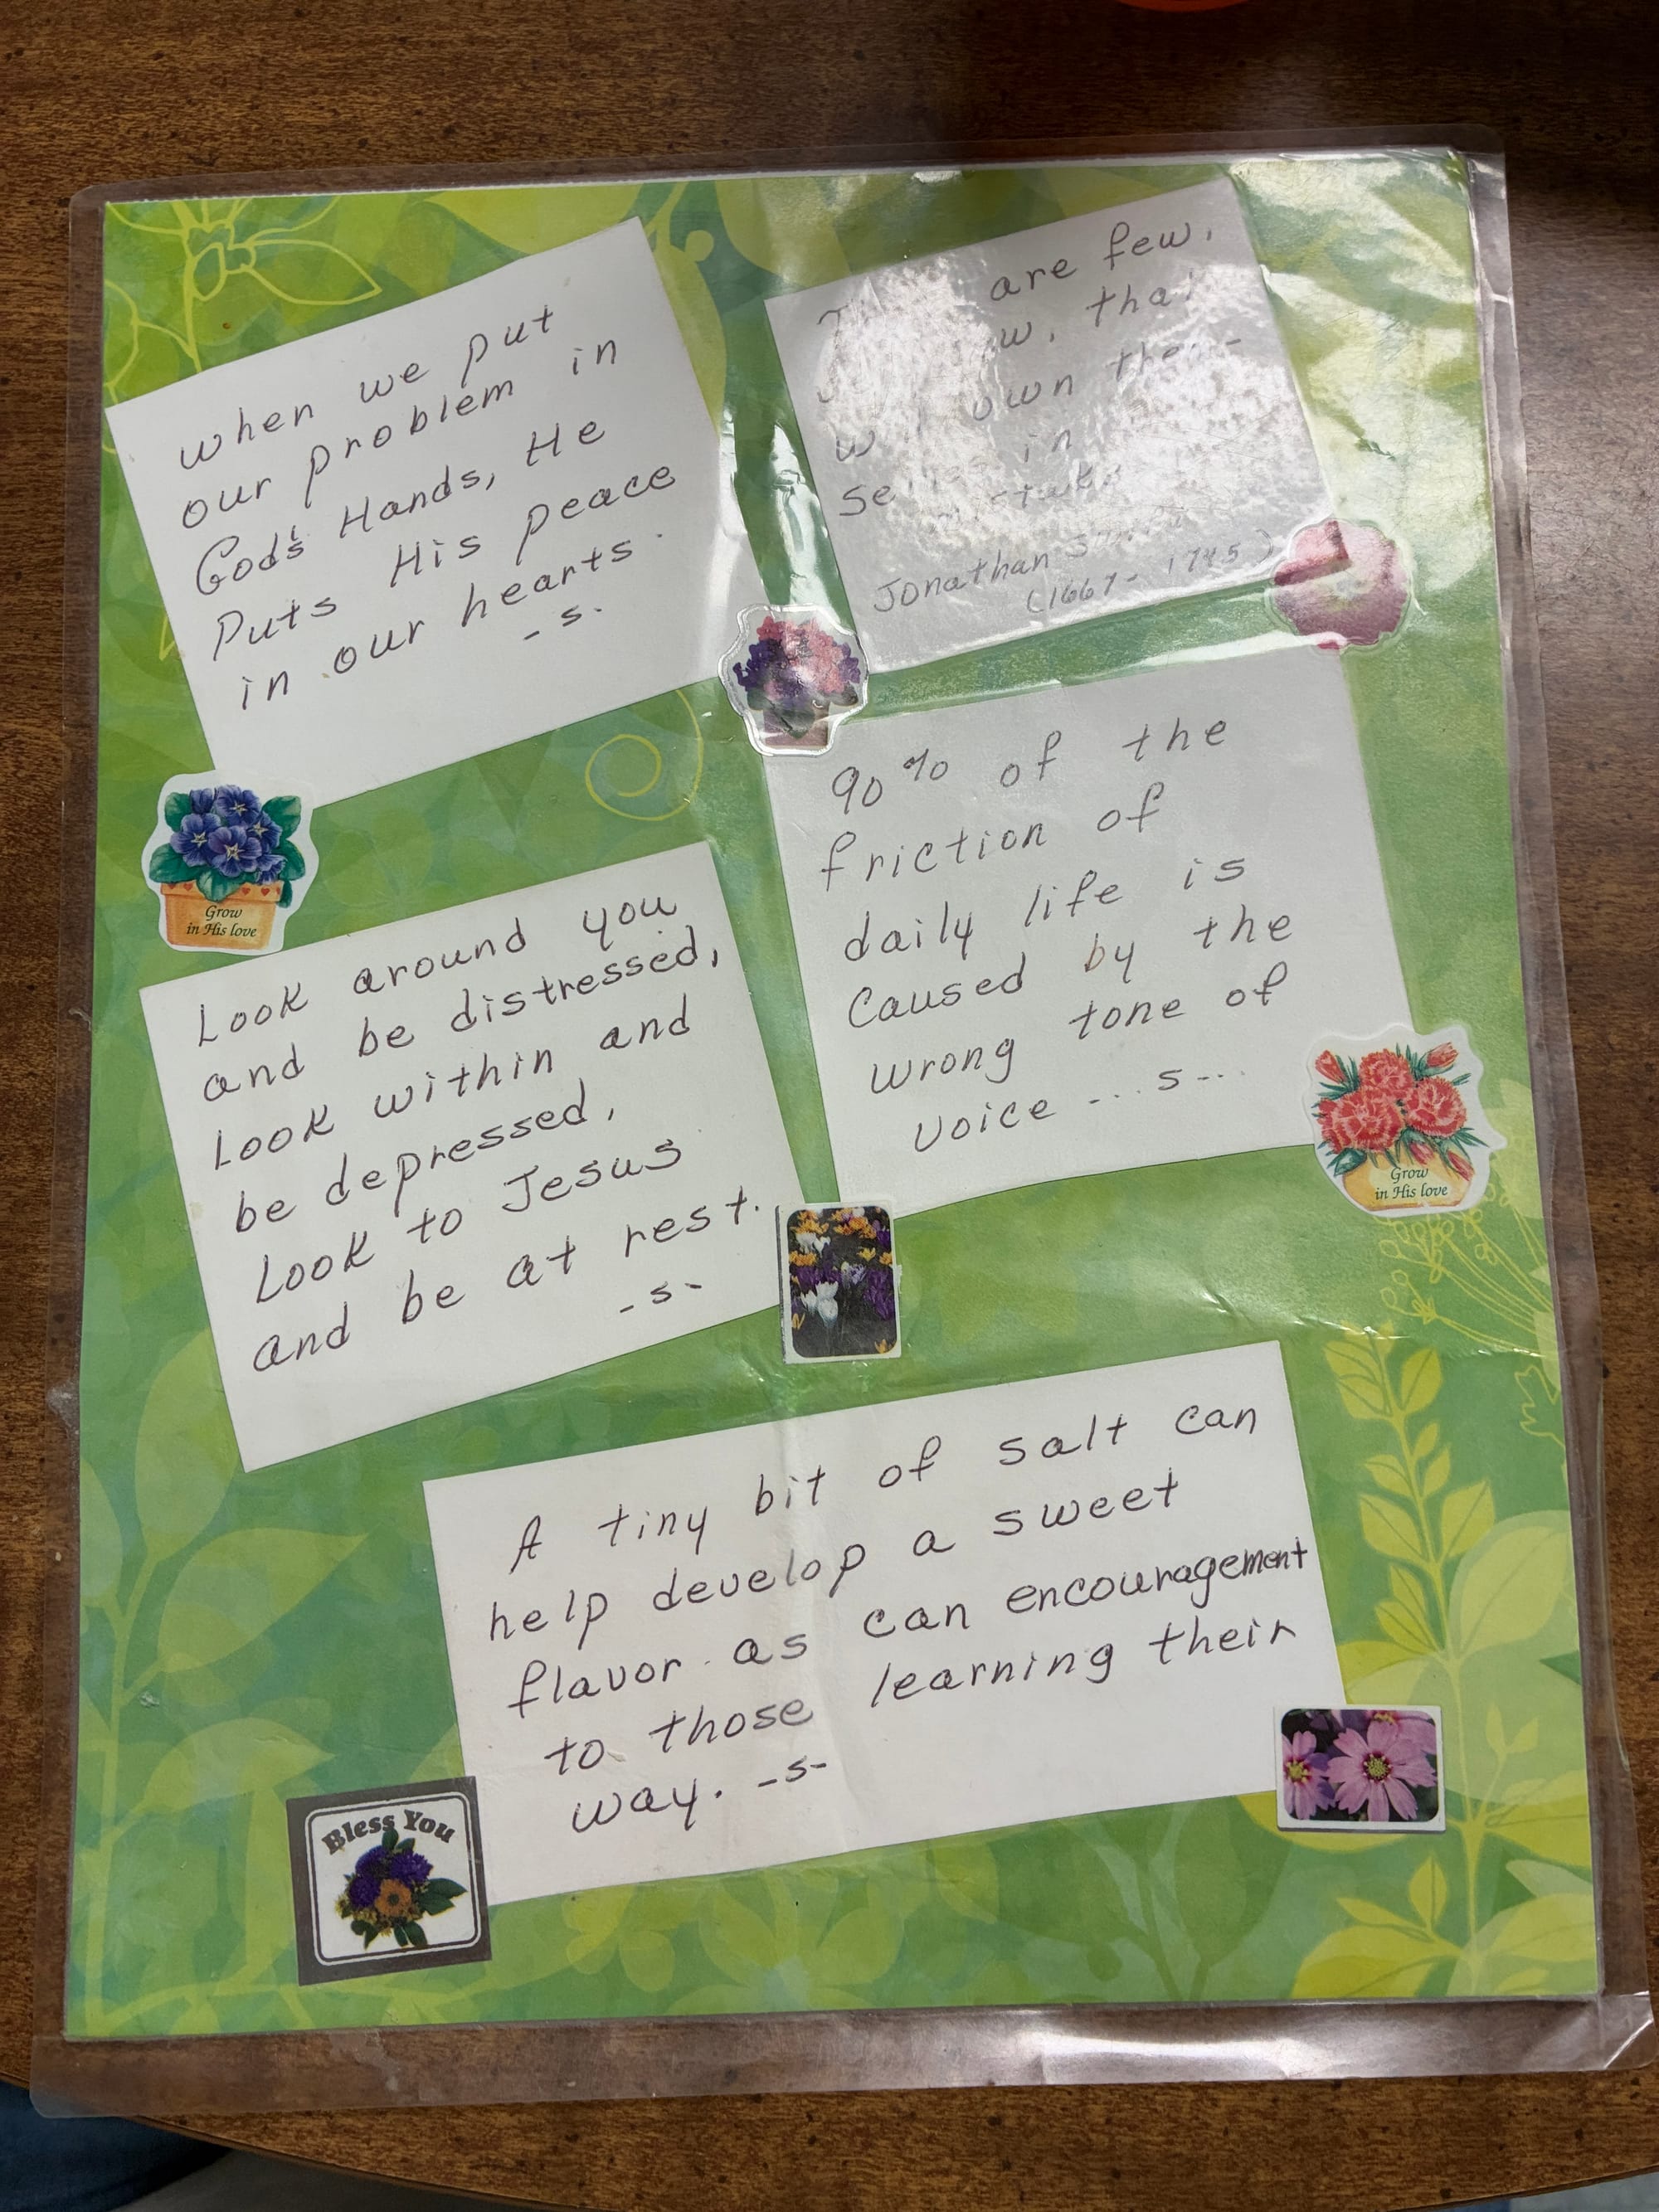 when we put
our problem in
God's Hands, He
Puts His peace
in our hearts.
- s.
are few,
that
own them-
in
Jonathan
(1667 - 1745)
Grow
in His love
90% of the
friction of
daily life is
Caused by the
wrong tone of
voice --..s-..
Look around you
and be distressed,
Look within and
be depressed,
Look to Jesus
and be at rest.
- s -
Grow
in His love
A tiny bit of salt can
help develop a sweet
flavor as can encouragement
to those learning their
way. -s-
Bless You